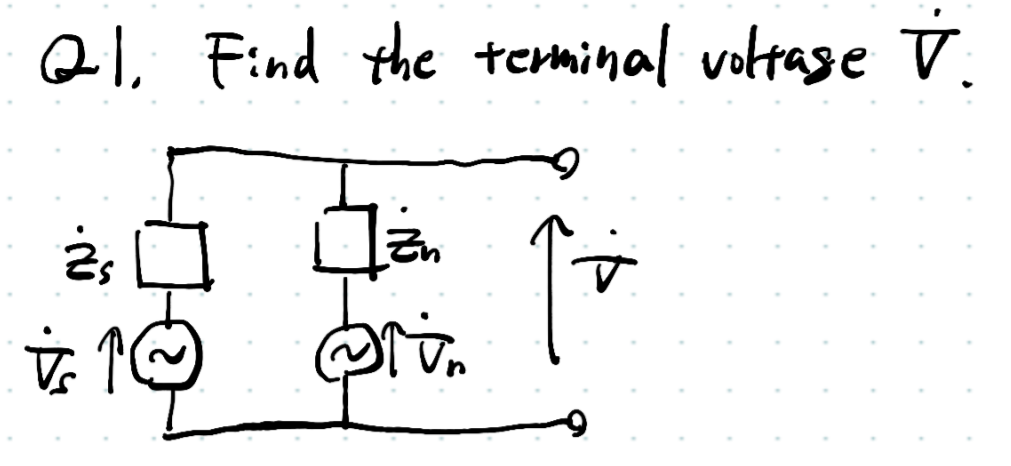 Q1. Find the terminal voltage V̇.
Żs
Żn
V̇
V̇s
V̇n